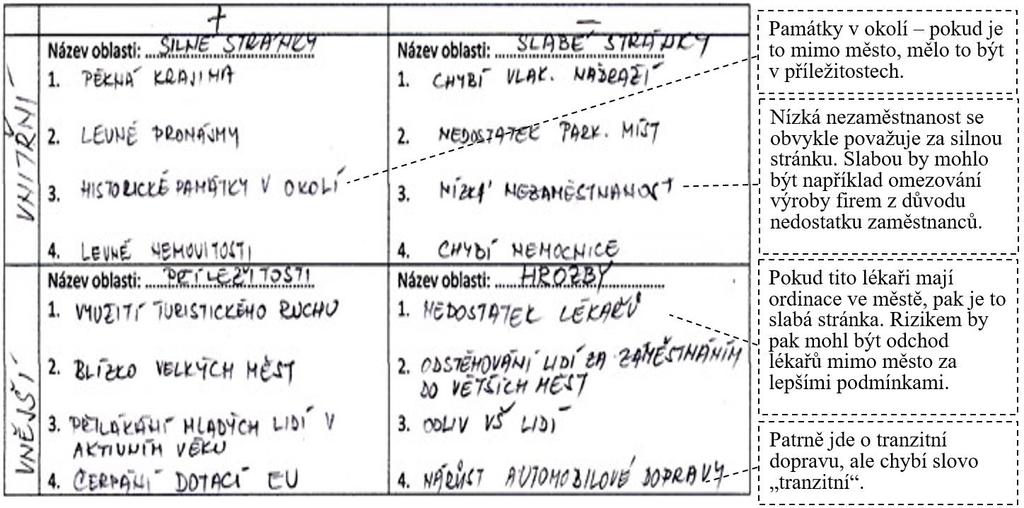 +
–
VNITŘNÍ
Název oblasti: SILNÉ STRÁNKY
1. PĚKNÁ KRAJINA
2. LEVNÉ PRONÁJMY
3. HISTORICKÉ PAMÁTKY V OKOLÍ
4. LEVNÉ NEMOVITOSTI
Název oblasti: SLABÉ STRÁNKY
1. CHYBÍ VLAK. NÁDRAŽÍ
2. NEDOSTATEK PARK. MÍST
3. NÍZKÁ NEZAMĚSTNANOST
4. CHYBÍ NEMOCNICE
VNĚJŠÍ
Název oblasti: PŘÍLEŽITOSTI
1. VYUŽITÍ TURISTICKÉHO RUCHU
2. BLÍZKO VELKÝCH MĚST
3. PŘILÁKÁNÍ MLADÝCH LIDÍ V
AKTIVNÍM VĚKU
4. ČERPÁNÍ DOTACÍ EU
Název oblasti: HROZBY
1. NEDOSTATEK LÉKAŘŮ
2. ODSTĚHOVÁNÍ LIDÍ ZA ZAMĚSTNÁNÍM
DO VĚTŠÍCH MĚST
3. ODLIV VŠ LIDÍ
4. NÁRŮST AUTOMOBILOVÉ DOPRAVY
Památky v okolí – pokud je
to mimo město, mělo to být
v příležitostech.
Nízká nezaměstnanost se
obvykle považuje za silnou
stránku. Slabou by mohlo
být například omezování
výroby firem z důvodu
nedostatku zaměstnanců.
Pokud tito lékaři mají
ordinace ve městě, pak je to
slabá stránka. Rizikem by
pak mohl být odchod
lékařů mimo město za
lepšími podmínkami.
Patrně jde o tranzitní
dopravu, ale chybí slovo
„tranzitní“.